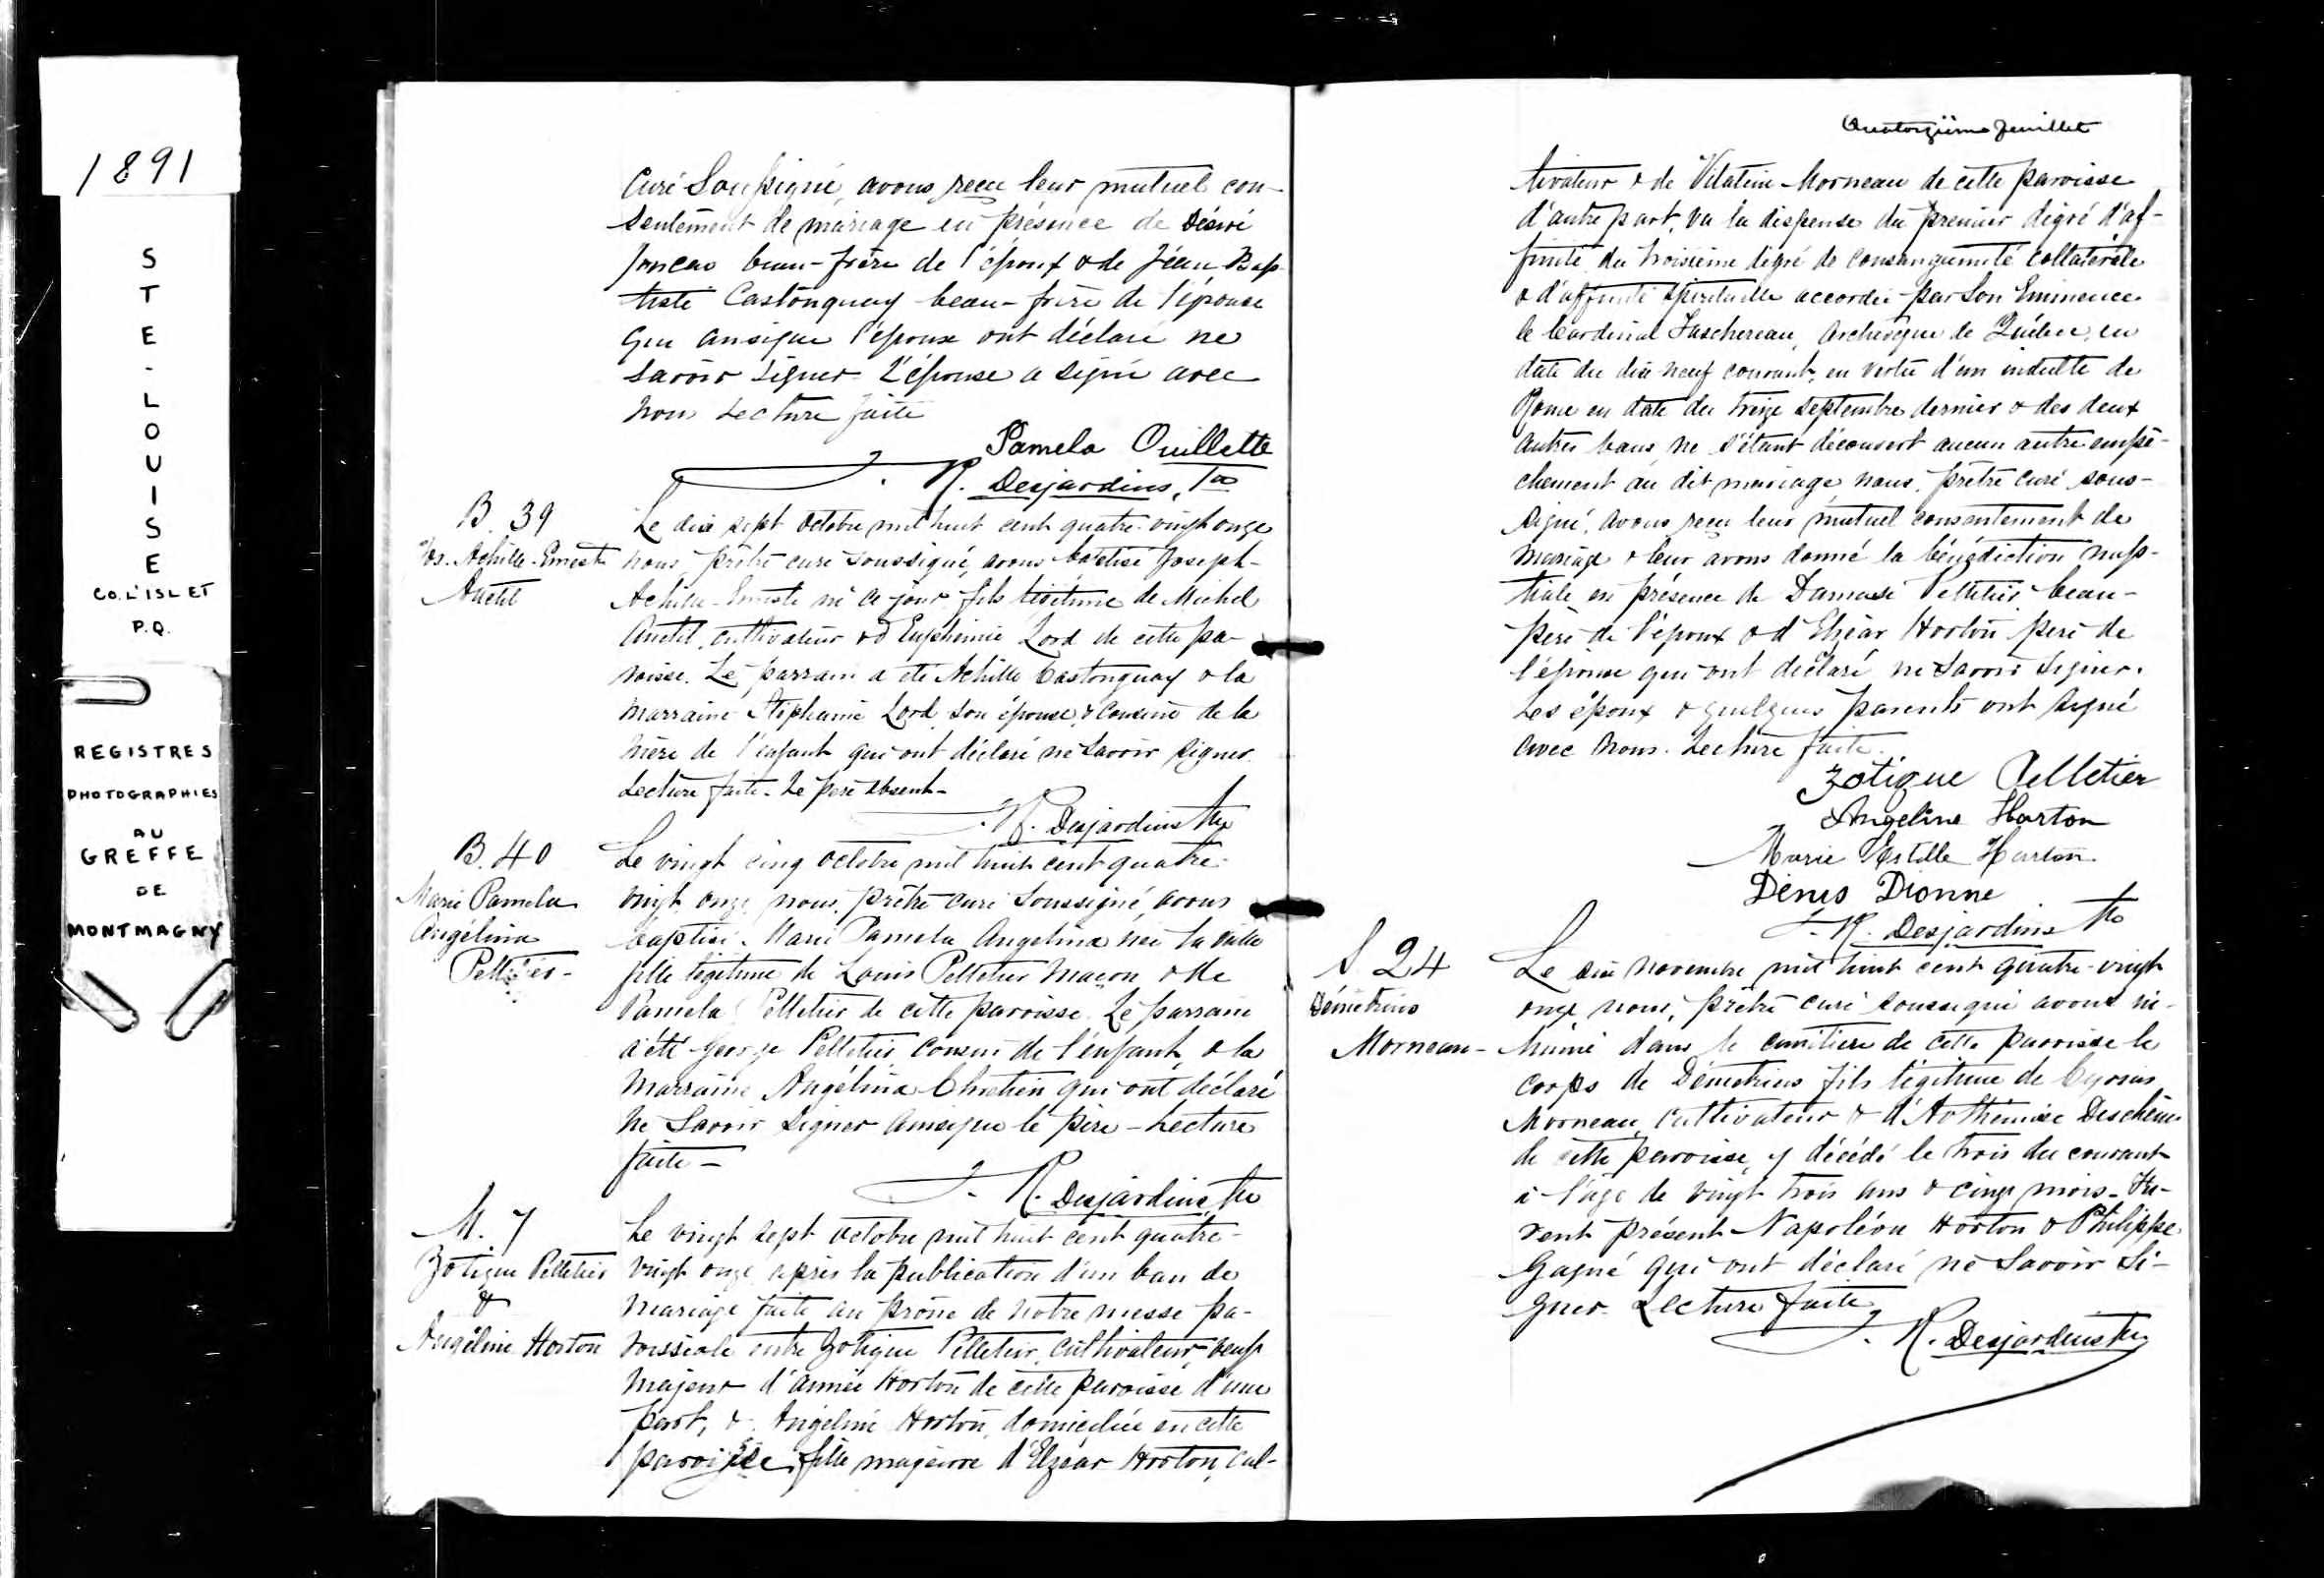 1891
STE-LOUISE
CO. L'ISLET
P.Q.
REGISTRES
PHOTOGRAPHIES
AU
GREFFE
DE
MONTMAGNY
Curé Soussigné, avons reçu leur mutuel con-
sentement de mariage en présence de Désiré
Joncas beau-frère de l'époux & de Jean Bap-
tiste Castonguay beau-frère de l'épouse
qui ainsique l'époux ont déclaré ne
savoir signer. L'épouse a signé avec
nous Lecture faite
Pamela Ouillette
J. R. Desjardins, Ptre
B. 39
Jos. Achille-Ernest
Anctil
Le dix sept octobre mil huit cent quatre-vingt onze
nous, prêtre curé soussigné, avons baptisé Joseph-
Achille-Ernest né ce jour, fils légitime de Michel
Anctil, cultivateur & d'Euphémie Lord de cette pa-
roisse. Le parrain a été Achille Castonguay & la
marraine Stéphanie Lord son épouse, & cousine de la
mère de l'enfant qui ont déclaré ne savoir signer.
Lecture faite. Le père absent-
J. R. Desjardins Ptre
B. 40
Marie Pamela
Angélina
Pelletier-
Le vingt cinq octobre mil huit cent quatre-
vingt onze, nous, prêtre curé soussigné, avons
baptisé Marie Pamela Angelina née la veille
fille légitime de Louis Pelletier maçon & de
Pamela Pelletier de cette paroisse. Le parrain
a été George Pelletier cousin de l'enfant, & la
marraine Angélina Chretien qui ont déclaré
ne savoir signer ainsique le père - Lecture
faite -
J. R. Desjardins Ptre
M. 7
Zotique Pelletier
&
Angéline Horton
Le vingt sept octobre mil huit cent quatre-
vingt onze, après la publication d'un ban de
mariage faite au prône de notre messe pa-
roissiale entre Zotique Pelletier, cultivateur, veuf
majeur d'Aimée Horton de cette paroisse d'une
part, & Angéline Horton, domiciliée en cette
paroisse, fille majeure d'Elzéar Horton, cul-
Quatorzième feuillet
tivateur & de Vitaline Morneau de cette paroisse
d'autre part, vu la dispense du premier dégré d'af-
finité du troisième dégré de consanguinité collatérale
& d'affinité spirituelle accordée par Son Eminence
le Cardinal Taschereau, archevêque de Québec, en
date du dix neuf courant, en vertu d'un indulte de
Rome en date du treize septembre dernier & des deux
autres bans, ne s'étant découvert aucun autre empê-
chement au dit mariage, nous, prêtre curé sous-
signé, avons reçu leur mutuel consentement de
mariage & leur avons donné la bénédiction nup-
tiale en présence de Damase Pelletier beau-
père de l'époux & d'Elzéar Horton père de
l'épouse qui ont déclaré ne savoir signer.
Les époux & quelques parents ont signé
avec nous. Lecture faite.
Zotique Pelletier
Angeline Horton
Marie Estelle Horton
Denis Dionne
J. R. Desjardins Ptre
S 24
Démétrius
Morneau-
Le six novembre mil huit cent quatre-vingt
onze nous, prêtre curé soussigné avons in-
humé dans le cimitière de cette paroisse le
corps de Démetrius fils légitime de Cyprien
Morneau, cultivateur & d'Arthémise Deschênes
de cette paroisse, y décédé le trois du courant
à l'âge de vingt trois ans & cinq mois. Fu-
rent présent Napoléon Horton & Philippe
Gagné qui ont déclaré ne savoir si-
gner. Lecture faite
J. R. Desjardins Ptre